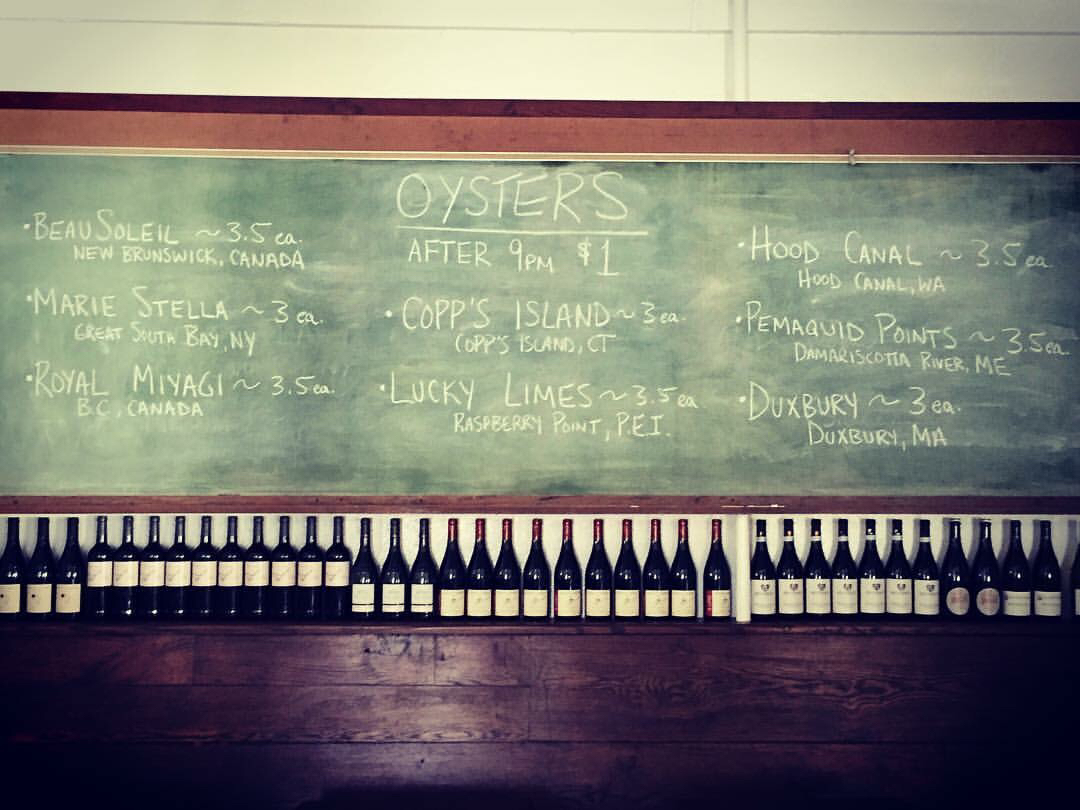 OYSTERS
AFTER 9PM $1
•BEAUSOLEIL ~ 3.5 ea.
NEW BRUNSWICK, CANADA
•MARIE STELLA ~ 3 ea.
GREAT SOUTH BAY, NY
•ROYAL MIYAGI ~ 3.5 ea.
B.C, CANADA
•COPP'S ISLAND ~ 3 ea.
COPP'S ISLAND, CT
•LUCKY LIMES ~ 3.5 ea
RASPBERRY POINT, P.E.I.
•HOOD CANAL ~ 3.5 ea
HOOD CANAL, WA
•PEMAQUID POINTS ~ 3.5 ea.
DAMARISCOTTA RIVER, ME
•DUXBURY ~ 3 ea.
DUXBURY, MA